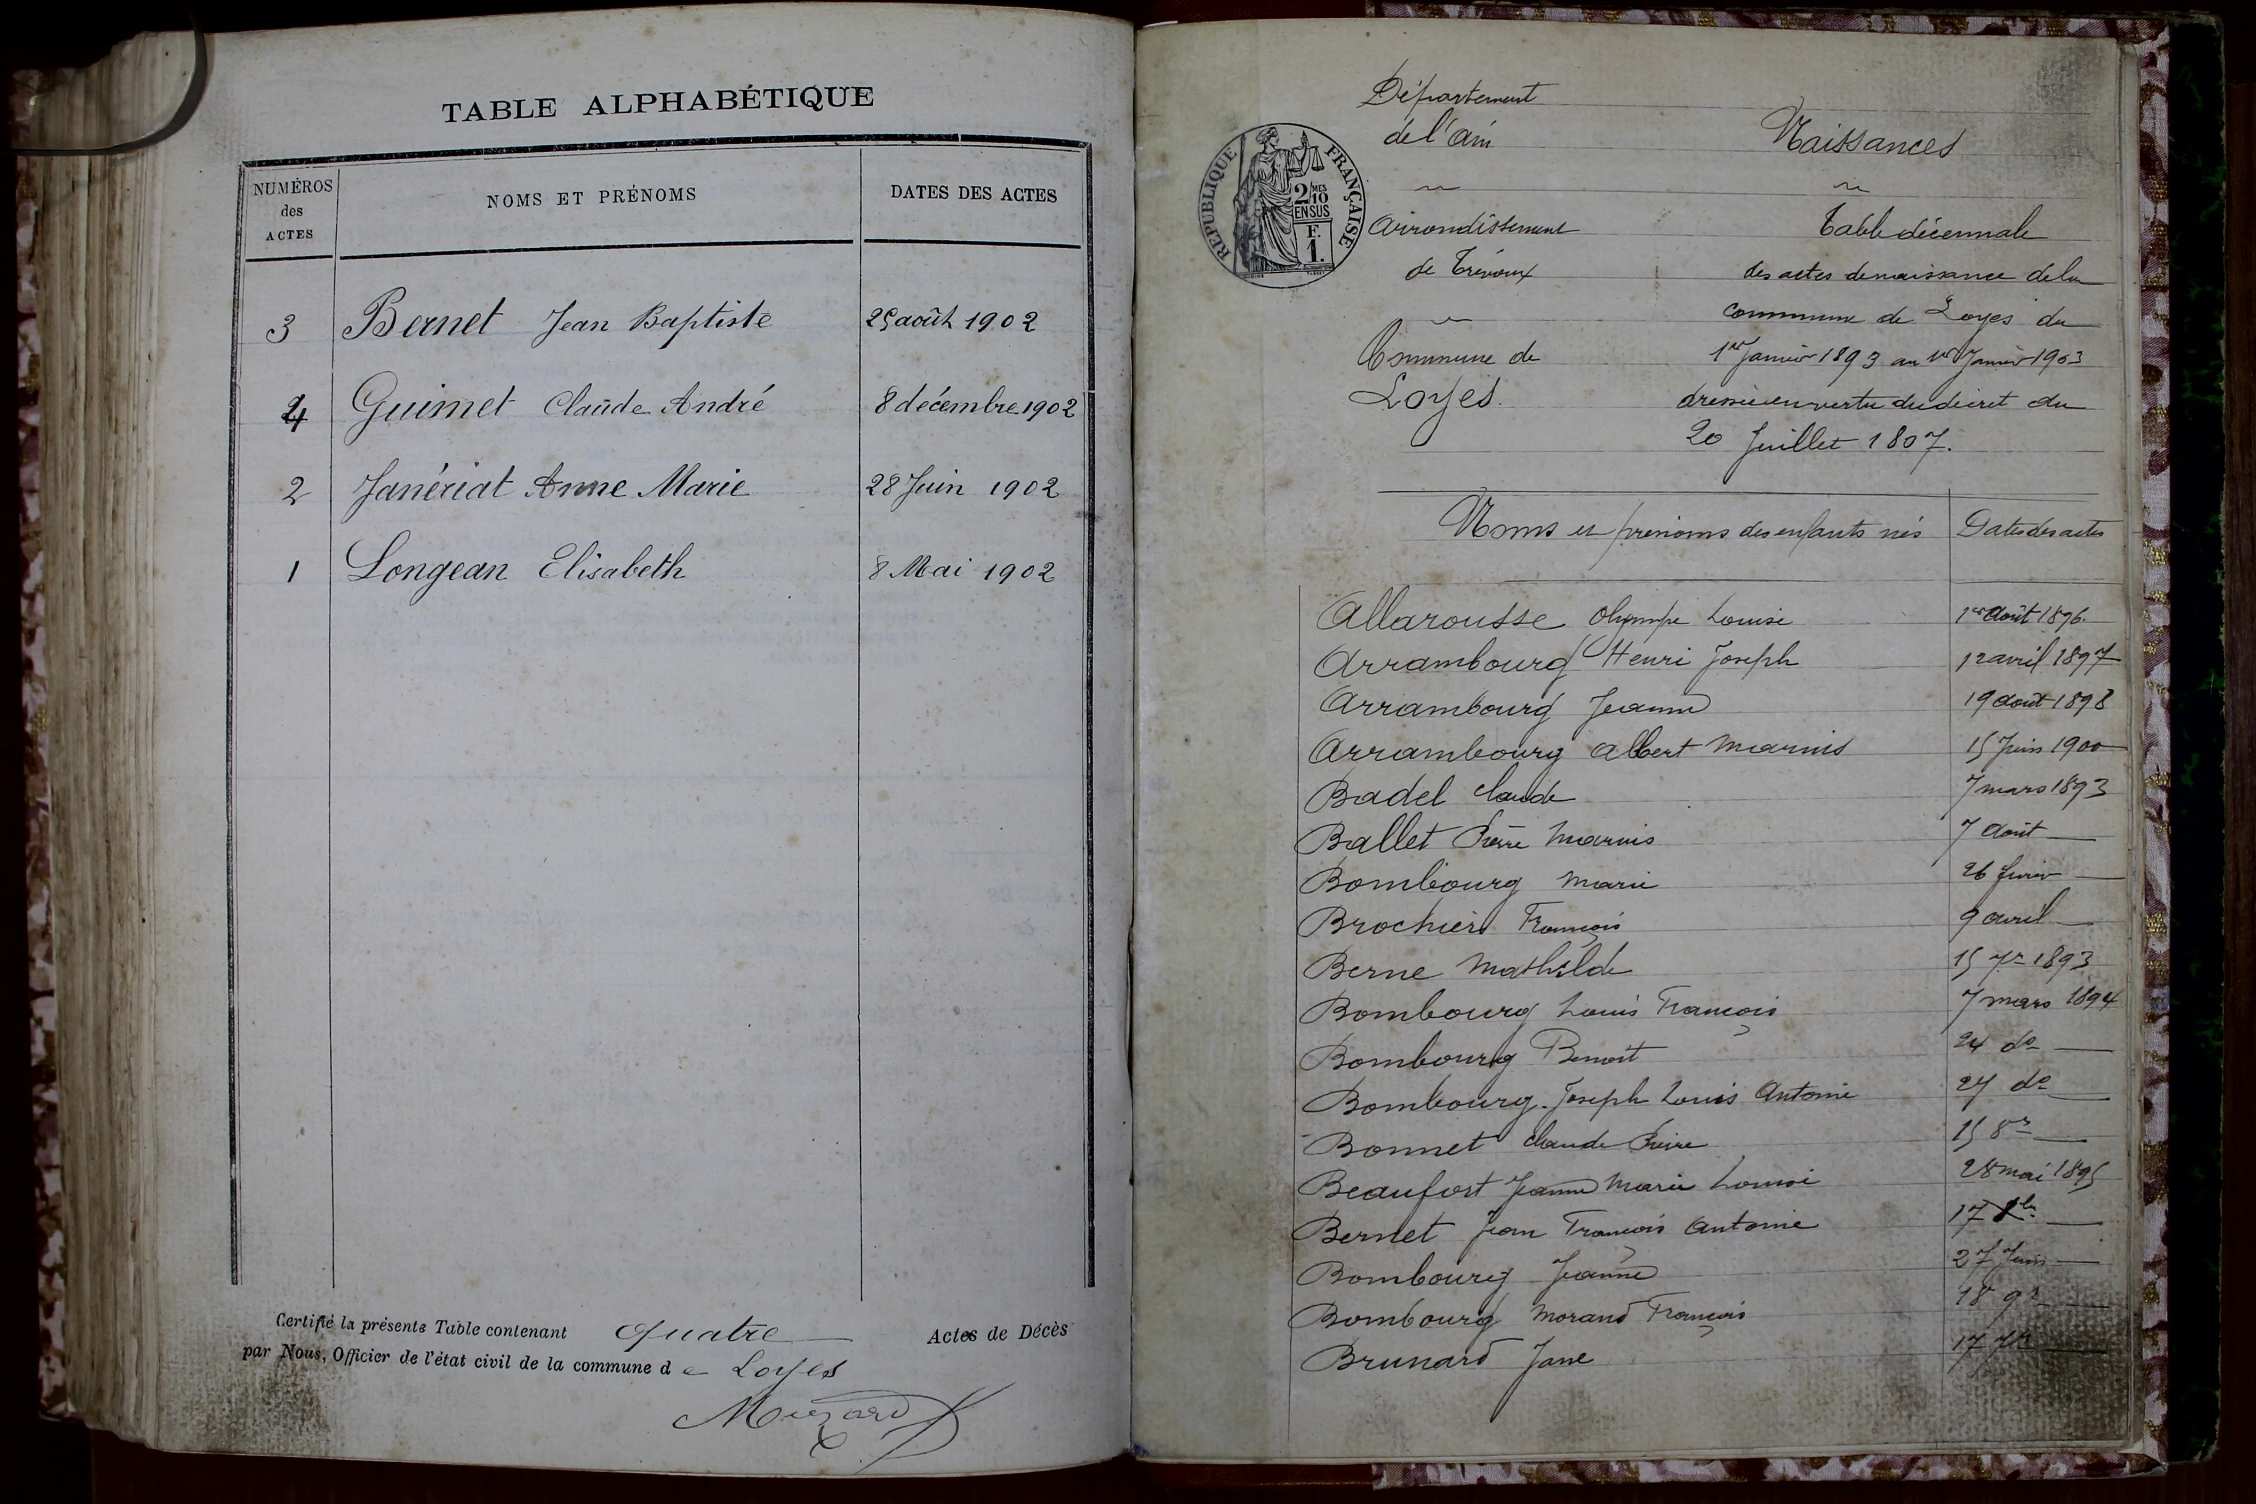 TABLE ALPHABÉTIQUE
NUMÉROS
des
ACTES
NOMS ET PRÉNOMS
DATES DES ACTES
3 Bernet Jean Baptiste 25 août 1902
4 Guimet Claude André 8 décembre 1902
2 Janériat Anne Marie 28 Juin 1902
1 Longean Elisabeth 8 Mai 1902
Certifié la présente Table contenant quatre Actes de Décès
par Nous, Officier de l'état civil de la commune de Loyes
Muzard
Département
de l'Ain
Arrondissement
de Trévoux
Commune de
Loyes.
RÉPUBLIQUE FRANÇAISE
2/10 MES
EN SUS
F.
1.
Naissances
Table décennale
des actes de naissance de la
commune de Loyes du
1er Janvier 1893 au 1er Janvier 1903
dressée en vertu du décret du
20 Juillet 1807.
Noms et prénoms des enfants nés Dates des actes
Allarousse Olympe Louise 1er Août 1896.
Arrambourg Henri Joseph 12 avril 1897
Arrambourg Jeanne 19 Août 1898
Arrambourg Albert Marius 15 Juin 1900
Badel Claude 7 mars 1893
Ballet Pierre Marius 7 Août —
Bombourg Marie 26 février —
Brochier François 9 avril —
Berne Mathilde 15 7re 1893
Bombourg Louis François 7 mars 1894
Bombourg Benoit 24 do —
Bombourg Joseph Louis Antoine 27 do —
Bonnet Claude Pierre 15 8re —
Beaufort Jeanne Marie Louise 28 mai 1895
Bernet Jean François Antoine 17 —
Bombourg Jeanne 27 Juin —
Bombourg Morand François 18 9re —
Brunard Jane 17 7re —